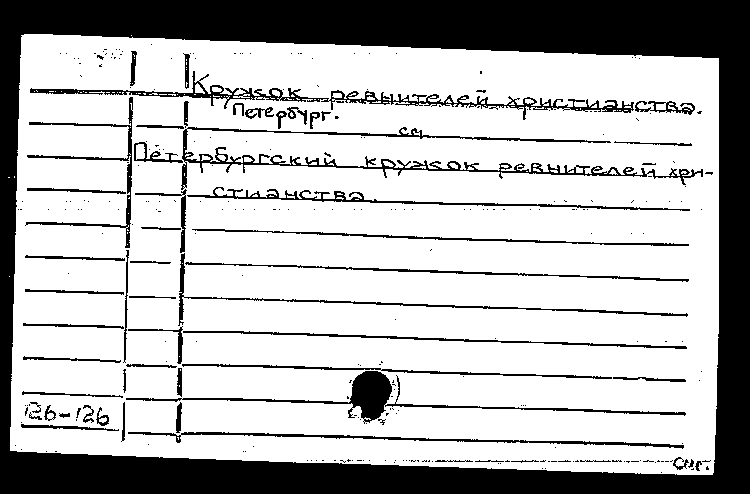 Кружок ревнителей христианства.
Петербург.
см
Петербургский кружок ревнителей хри-
стианства.
126-126
См.